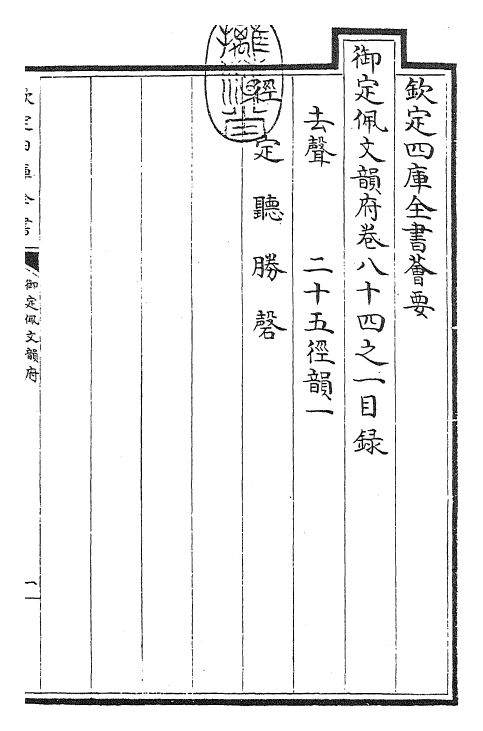 欽定四庫全書薈要
御定佩文韻府卷八十四之一目録
去聲 二十五徑韻一
定 聽 勝 磬
欽定四庫全書
御定佩文韻府
一